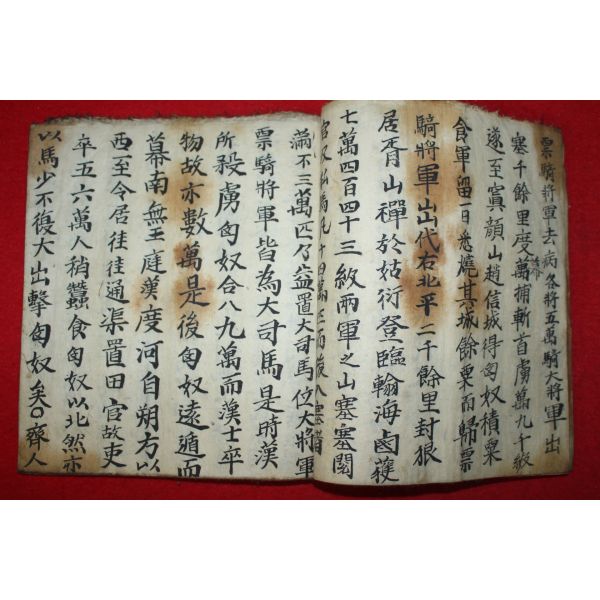 票騎將軍去病各將五萬騎大將軍出
塞千餘里度幕捕斬首虜萬九千級
遂至窴顏山趙信城得匈奴積粟
食軍留一日悉燒其城餘粟而歸票
騎將軍出代右北平二千餘里封狼
居胥山禪於姑衍登臨翰海鹵獲
七萬四百四十三級兩軍之出塞塞閱
官及私馬凡十四萬匹而復入塞者
滿不三萬匹乃益置大司馬位大將軍
票騎將軍皆為大司馬是時漢
所殺虜匈奴合八九萬而漢士卒
物故亦數萬是後匈奴遠遁而
幕南無王庭漢度河自朔方以
西至令居往往通渠置田官故吏
卒五六萬人稍蠶食匈奴以北然亦
以馬少不復大出擊匈奴矣○齊人